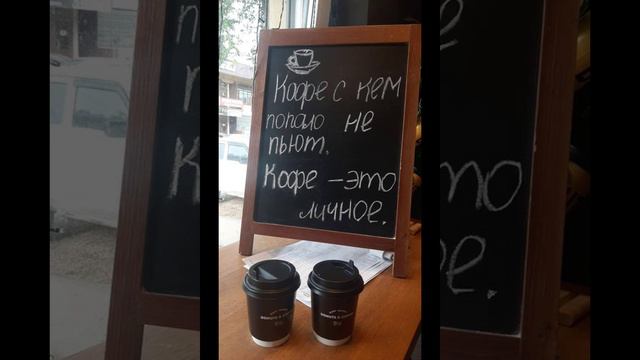 Кофе с кем
попало не
пьют.
Кофе – это
личное.